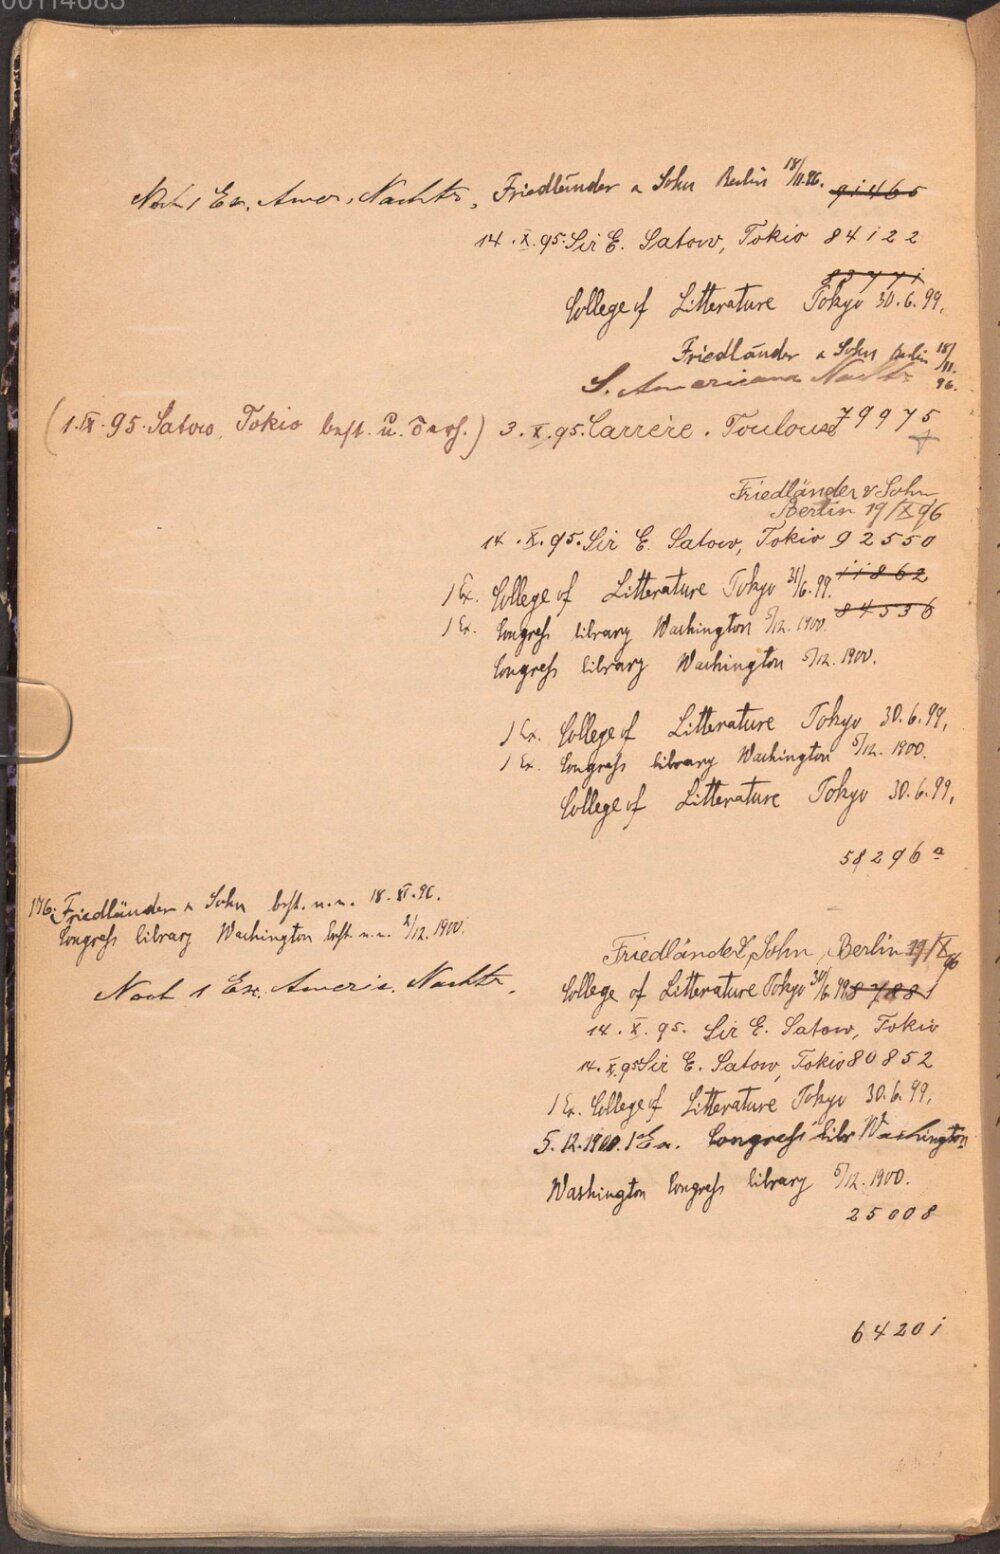 00114683
Noch 1 Ex. Amer. Nachtr. Friedländer & Sohn Berlin 18/11.96. 91465
14.X.95. Sir E. Satow, Tokio 84122
83771
College of Litterature Tokyo 30.6.99.
Friedländer & Sohn Berlin 18/11.96.
S. Americana Nachtr.
(1.IX.95. Satow, Tokio best. u.) 3.X.95. Carrère. Toulouse 79975
Friedländer & Sohn
Berlin 19/X 96
14.X.95. Sir E. Satow, Tokio 92550
11862
1 Ex. College of Litterature Tokyo 31/6.99.
84536
1 Ex. Congress library Washington 5/12.1900.
Congress library Washington 5/12.1900.
1 Ex. College of Litterature Tokyo 30.6.99.
1 Ex. Congress library Washington 5/12.1900.
College of Litterature Tokyo 30.6.99.
58296a
176. Friedländer & Sohn best. n.n. 18.XI.96.
Congress library Washington best. n.n. 5/12.1900.
Friedländer & Sohn, Berlin 19/X 96
Noch 1 Ex. Americ. Nachtr.
College of Litterature Tokyo 30/6.99. 87881
14.X.95. Sir E. Satow, Tokio
14.X.95 Sir E. Satow, Tokio 80852
1 Ex. College of Litterature Tokyo 30.6.99.
5.12.1900. 1 Ex. Congress Libr Washington
Washington Congress library 5/12.1900.
25008
64201